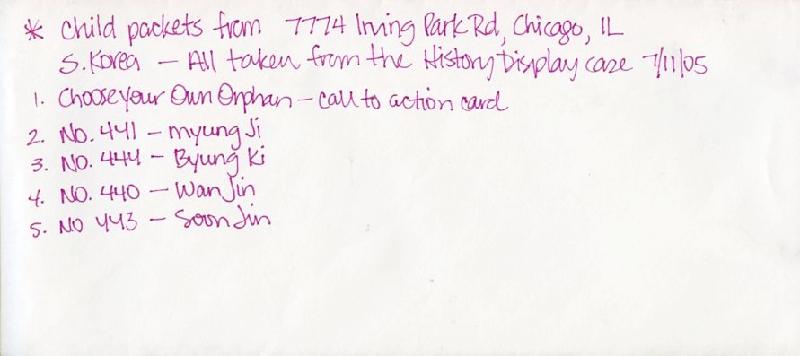 * Child packets from 7774 Irving Park Rd, Chicago, IL
S. Korea — All taken from the History Display case 7/11/05
1. Choose Your Own Orphan — call to action card
2. No. 441 — Myung Ji
3. No. 444 — Byung Ki
4. No. 440 — Wan Jin
5. No 443 — Soon Jin